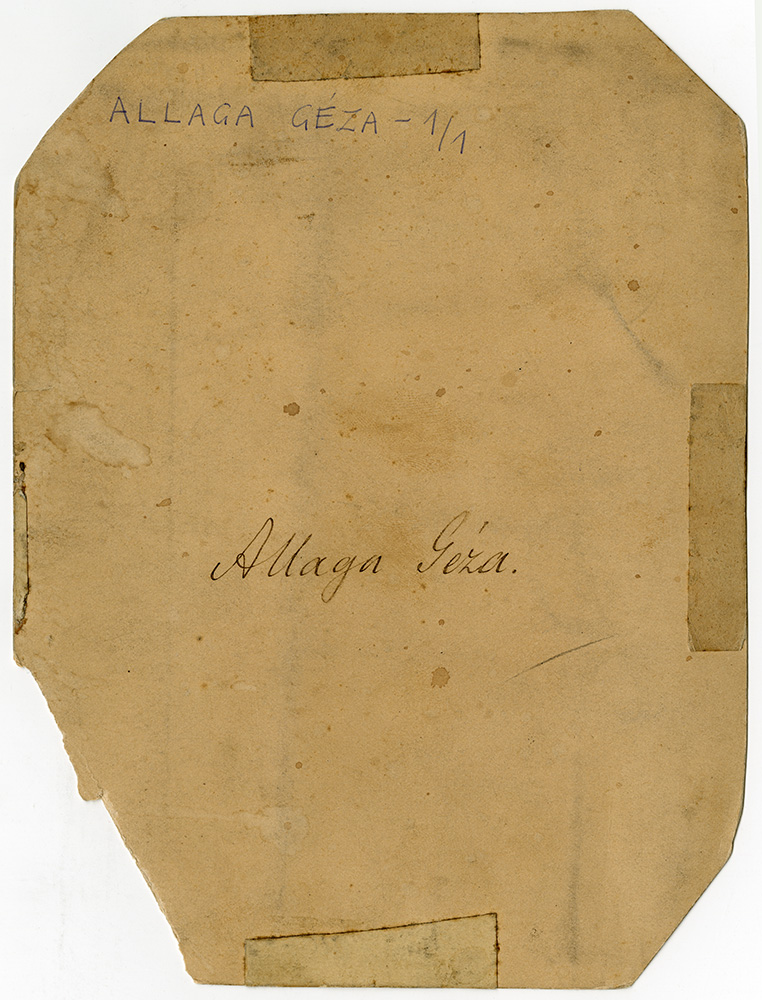 ALLAGA GÉZA - 1/1
Allaga Géza.